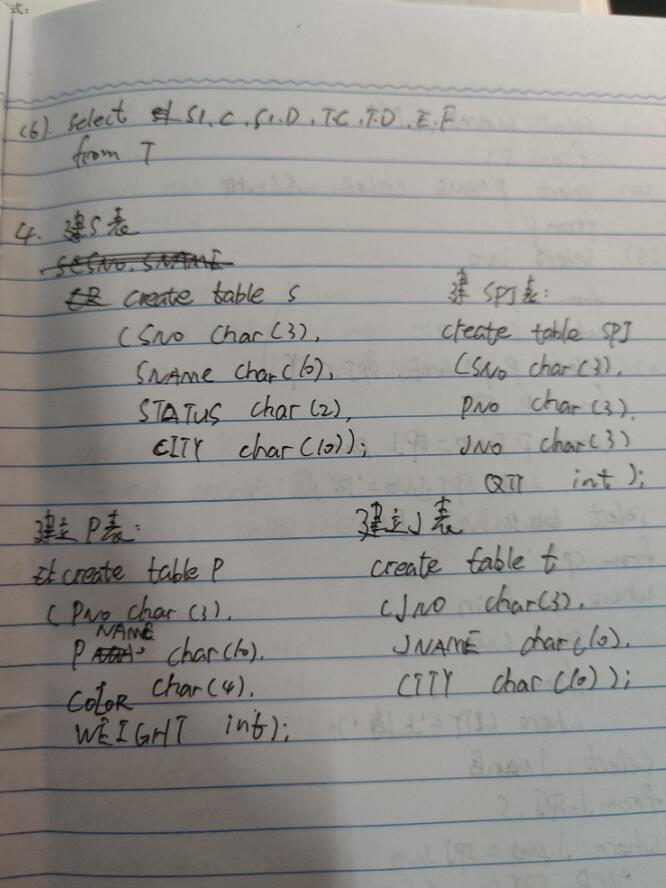 式:
(6). select S1.C, S1.D, T.C, T.D, E, F
from T
4. 建S表
create table S
(SNO char(3),
SNAME char(10),
STATUS char(2),
CITY char(10));
建SPJ表:
create table SPJ
(SNO char(3),
PNO char(3),
JNO char(3)
QTY int);
建立P表:
create table P
(PNO char(3),
PNAME char(10),
COLOR char(4),
WEIGHT int);
建立J表
create table t
(JNO char(3),
JNAME char(10),
CITY char(10));